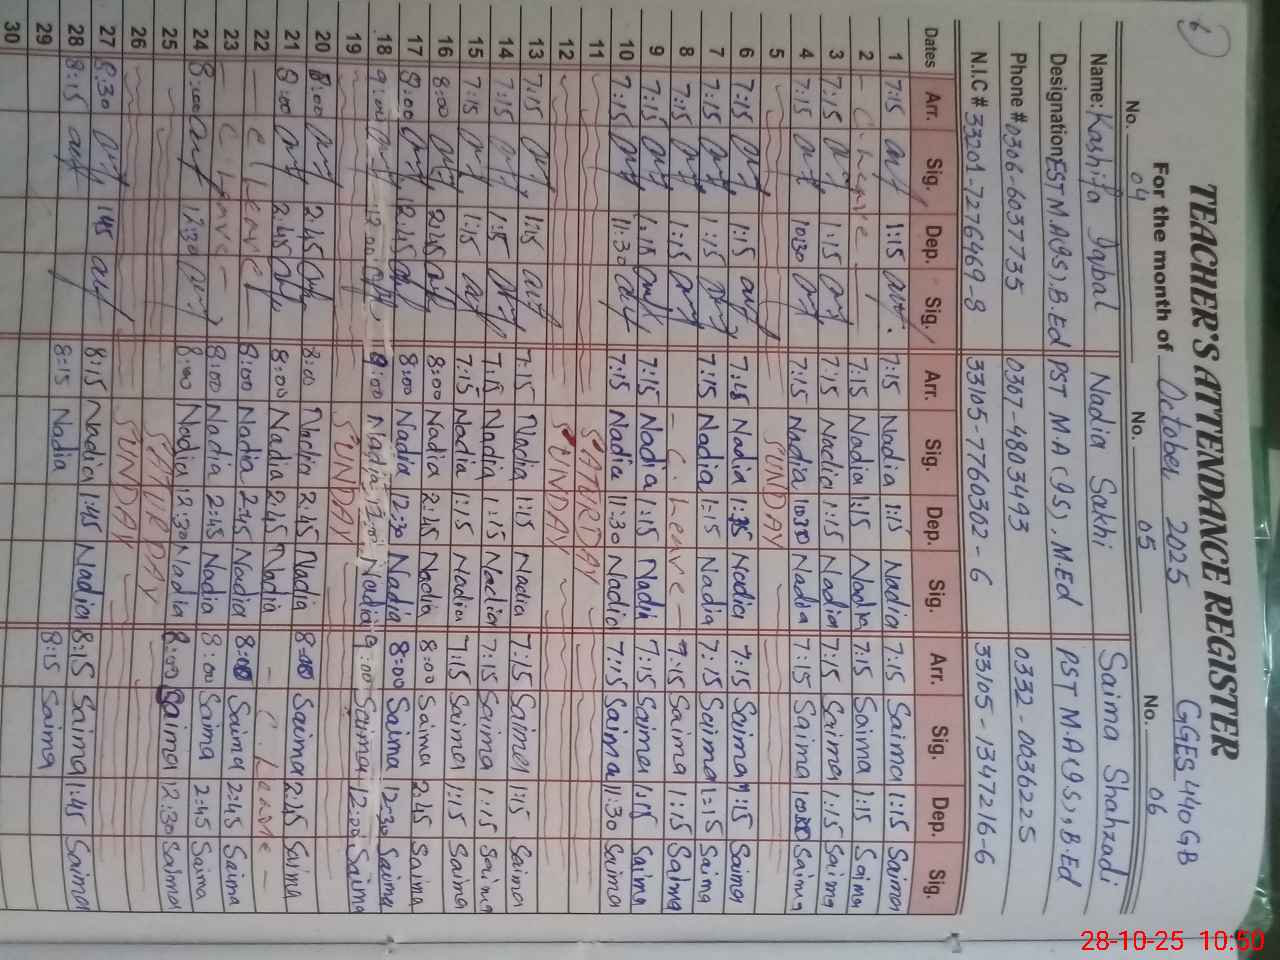 6
TEACHER'S ATTENDANCE REGISTER
For the month of October 2025 GGES 440 GB
No. 04 No. 05 No. 06
Name: Kashifa Iqbal Nadia Sakhi Saima Shahzadi
Designation EST M.A(IS), B.Ed PST M.A (IS), M.Ed PST M.A (IS), B.Ed
Phone # 0306-6037735 0307-4803493 0332-0036225
N.I.C # 33201-7276469-8 33105-7760302-6 33105-1347216-6
Dates Arr. Sig. Dep. Sig. Arr. Sig. Dep. Sig. Arr. Sig. Dep. Sig.
1 7:15 1:15 7:15 Nadia 1:15 Nadia 7:15 Saima 1:15 Saima
2 - C. Leave - 7:15 Nadia 1:15 Nadia 7:15 Saima 1:15 Saima
3 7:15 1:15 7:15 Nadia 1:15 Nadia 7:15 Saima 1:15 Saima
4 7:15 10:30 7:15 Nadia 10:30 Nadia 7:15 Saima 10:30 Saima
5 SUNDAY
6 7:15 1:15 7:15 Nadia 1:15 Nadia 7:15 Saima 1:15 Saima
7 7:15 1:15 7:15 Nadia 1:15 Nadia 7:15 Saima 1:15 Saima
8 7:15 1:15 - C. Leave - 7:15 Saima 1:15 Saima
9 7:15 1:15 7:15 Nadia 1:15 Nadia 7:15 Saima 1:15 Saima
10 7:15 11:30 7:15 Nadia 11:30 Nadia 7:15 Saima 11:30 Saima
11 SATURDAY
12 SUNDAY
13 7:15 1:15 7:15 Nadia 1:15 Nadia 7:15 Saima 1:15 Saima
14 7:15 1:15 7:15 Nadia 1:15 Nadia 7:15 Saima 1:15 Saima
15 7:15 1:15 7:15 Nadia 1:15 Nadia 7:15 Saima 1:15 Saima
16 8:00 2:45 8:00 Nadia 2:45 Nadia 8:00 Saima 2:45 Saima
17 8:00 12:45 8:00 Nadia 12:30 Nadia 8:00 Saima 12:30 Saima
18 9:00 12:00 9:00 Nadia 12:00 Nadia 9:00 Saima 12:00 Saima
19 SUNDAY
20 8:00 2:45 8:00 Nadia 2:45 Nadia 8:00 Saima 2:45 Saima
21 8:00 2:45 8:00 Nadia 2:45 Nadia - C. Leave -
22 - C Leave - 8:00 Nadia 2:45 Nadia 8:00 Saima 2:45 Saima
23 - C. Leave - 8:00 Nadia 2:45 Nadia 8:00 Saima 2:45 Saima
24 8:00 12:30 8:00 Nadia 12:30 Nadia 8:00 Saima 12:30 Saima
25 SATURDAY
26 SUNDAY
27 8:30 1:45 8:15 Nadia 1:45 Nadia 8:15 Saima 1:45 Saima
28 8:15 8:15 Nadia 8:15 Saima
29
30
28-10-25 10:50